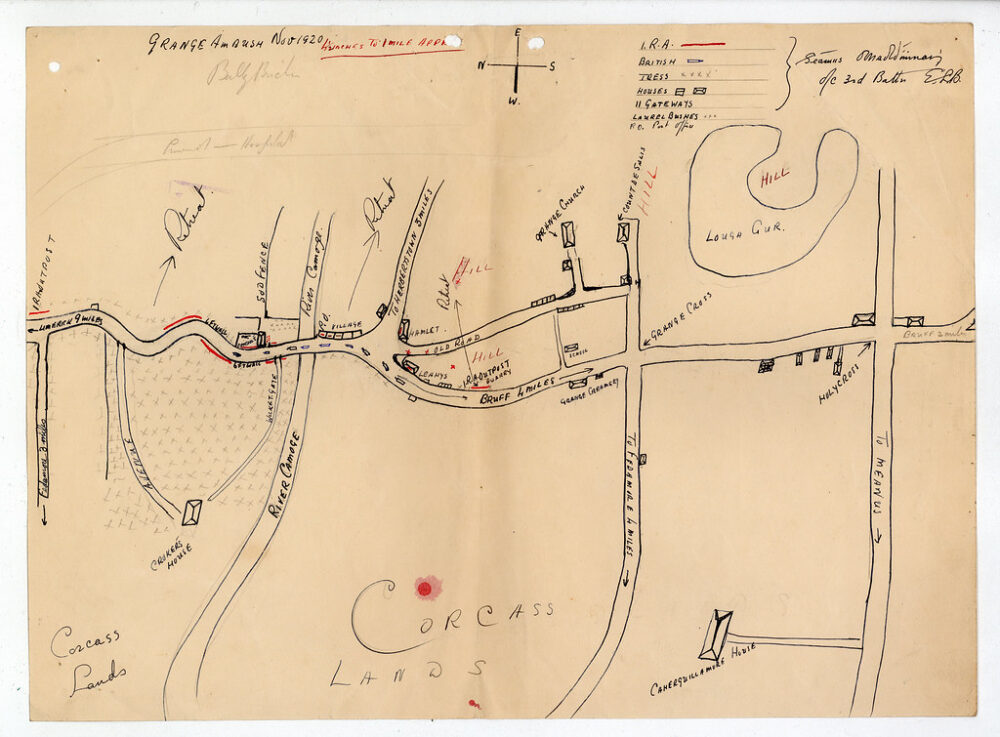 GRANGE AMBUSH NOV 1920.
4 INCHES TO 1 MILE APPR
E
N S
W.
I.R.A.
BRITISH
TRESS xxxx
HOUSES
11 GATEWAYS
LAUREL BUSHES ...
P.O. Post office
Seamus
o/c 3rd Battn E.L.B.
Retreat
Retreat
TO HERBERTSTOWN 3 MILES
GRANGE CHURCH
COUNT DE SALIS
HILL
HILL
LOUGA GUR.
I.R.A OUTPOST
LIMERICK 9 MILES
SOD FENCE
River Camoge
P.O.
VILLAGE
HAMLET.
OLD ROAD
HILL
HILL
LEAHYS
I.R.A OUTPOST
QUARRY
BRUFF 4 MILES
SCHOOL
GRANGE CREAMERY
GRANGE CROSS
HOLYCROSS
BRUFF 2 miles
Fedamore 3 miles
AVENUE
WICKET GATE
RIVER CAMOGE
CROKER'S
HOUSE
TO FEDAMORE 4 MILES
TO MEANUS
CORCASS
LANDS
Corcass
Lands
CAHERGUILLAMORE HOUSE